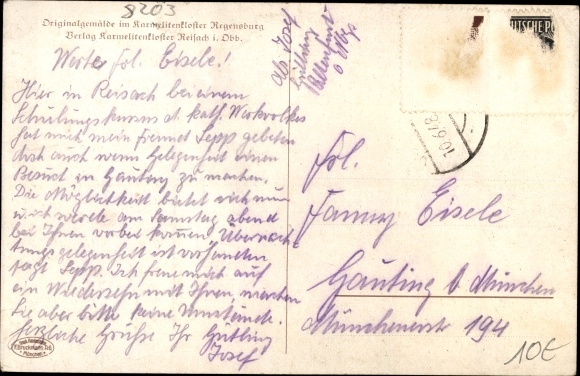 8203
Originalgemälde im Karmelitenkloster Regensburg
Verlag Karmelitenkloster Reisach i. Obb.
Werte Frl. Eisele!
Hier in Reisach bei einem
Schulungskursus d. kath. Werkvolkes
hat mich mein Freund Sepp gebeten
doch auch wenn Gelegenheit einen
Besuch in Gauting zu machen.
Die Möglichkeit bietet sich nun
u. ich werde am Samstag abend
bei Ihnen vorbei kommen. Übernach-
tungsgelegenheit ist vorhanden
sagt Sepp. Ich freue mich auf
ein Wiedersehn mit Ihnen, machen
Sie aber bitte keine Umstände.
Herzliche Grüsse Ihr Gütling
Josef
Abs. Josef
Gütling
DEUTSCHE PO
10.6.
Frl.
Fanny Eisele
Gauting b. München
Münchenerstr 194
10€